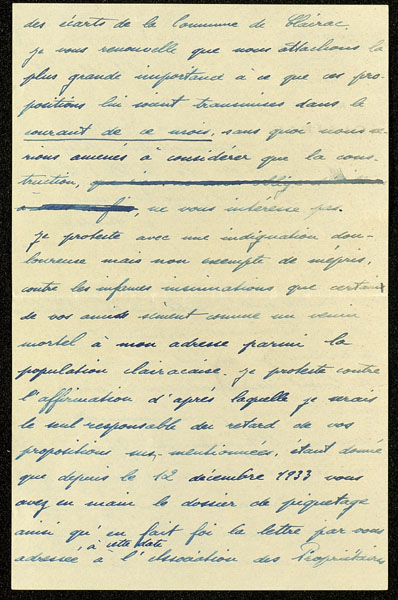 des écarts de la Commune de Clairac.
je vous renouvelle que nous attachons la
plus grande importance à ce que ces pro-
positions lui soient transmises dans le
courant de ce mois, sans quoi nous se-
rions amenés à considérer que la cons-
truction, ne vous intéresse pas.
Je proteste avec une indignation dou-
loureuse mais non exempte de mépris,
contre les infâmes insinuations que certains
de vos amis sèment comme un venin
mortel à mon adresse parmi la
population clairacaise. je proteste contre
l'affirmation d'après laquelle je serais
le seul responsable du retard de vos
propositions sus-mentionnées, étant donné
que depuis le 12 décembre 1933 vous
avez en main le dossier de piquetage
ainsi qu'en fait foi la lettre par vous
à cette date
adressée à l'Association des Propriétaires